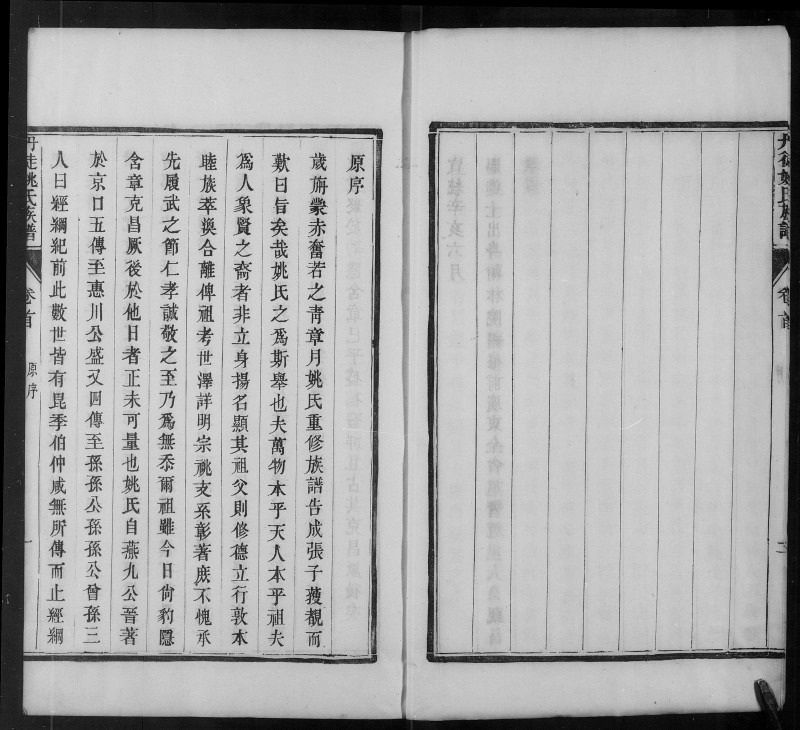 丹徒姚氏族譜
卷首
二
原序
歲旃蒙赤奮若之靑章月姚氏重修族譜告成張子獲覩而
歎曰旨矣哉姚氏之爲斯舉也夫萬物本乎天人本乎祖夫
爲人象賢之裔者非立身揚名顯其祖父則修德立行敦本
睦族萃渙合離俾祖考世澤詳明宗祧支系彰著庶不愧承
先履武之節仁孝誠敬之至乃爲無忝爾祖雖今日尙豹隱
含章克昌厥後於他日者正未可量也姚氏自燕九公晉著
於京口五傳至惠川公盛又四傳至孫孫公孫孫公曾孫三
人曰經綱紀前此數世皆有昆季伯仲咸無所傳而止經綱
丹徒姚氏族譜
卷首
原序
一